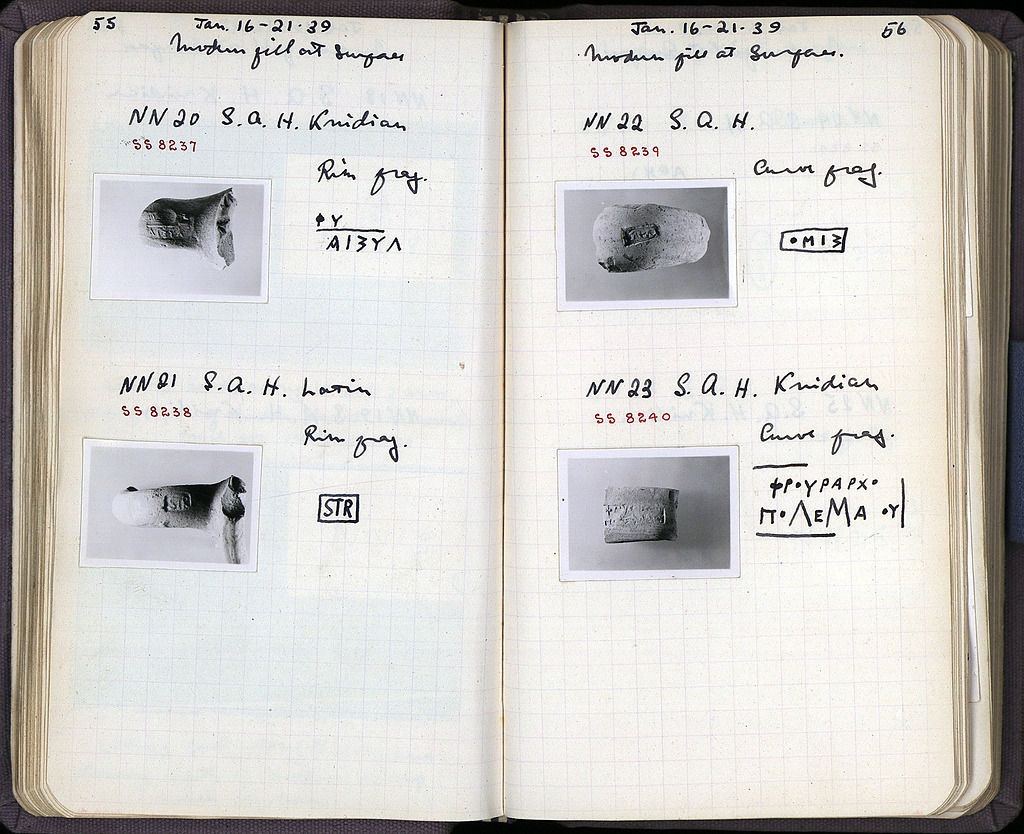 55
Jan. 16-21-39
Modern fill at Surface
NN20 S.A.H. Knidian
SS 8237
Rim frag.
ΦΥ
ΑΙΣΥΛ
NN21 S.A.H. Latin
SS 8238
Rim frag.
STR
Jan. 16-21-39
56
Modern fill at Surface.
NN22 S.A.H.
SS 8239
Curve frag.
ΟΜΙΣ
NN23 S.A.H. Knidian
SS 8240
Curve frag.
ΦΡΟΥΡΑΡΧΟ
ΠΟΛΕΜΑ ΟΥ